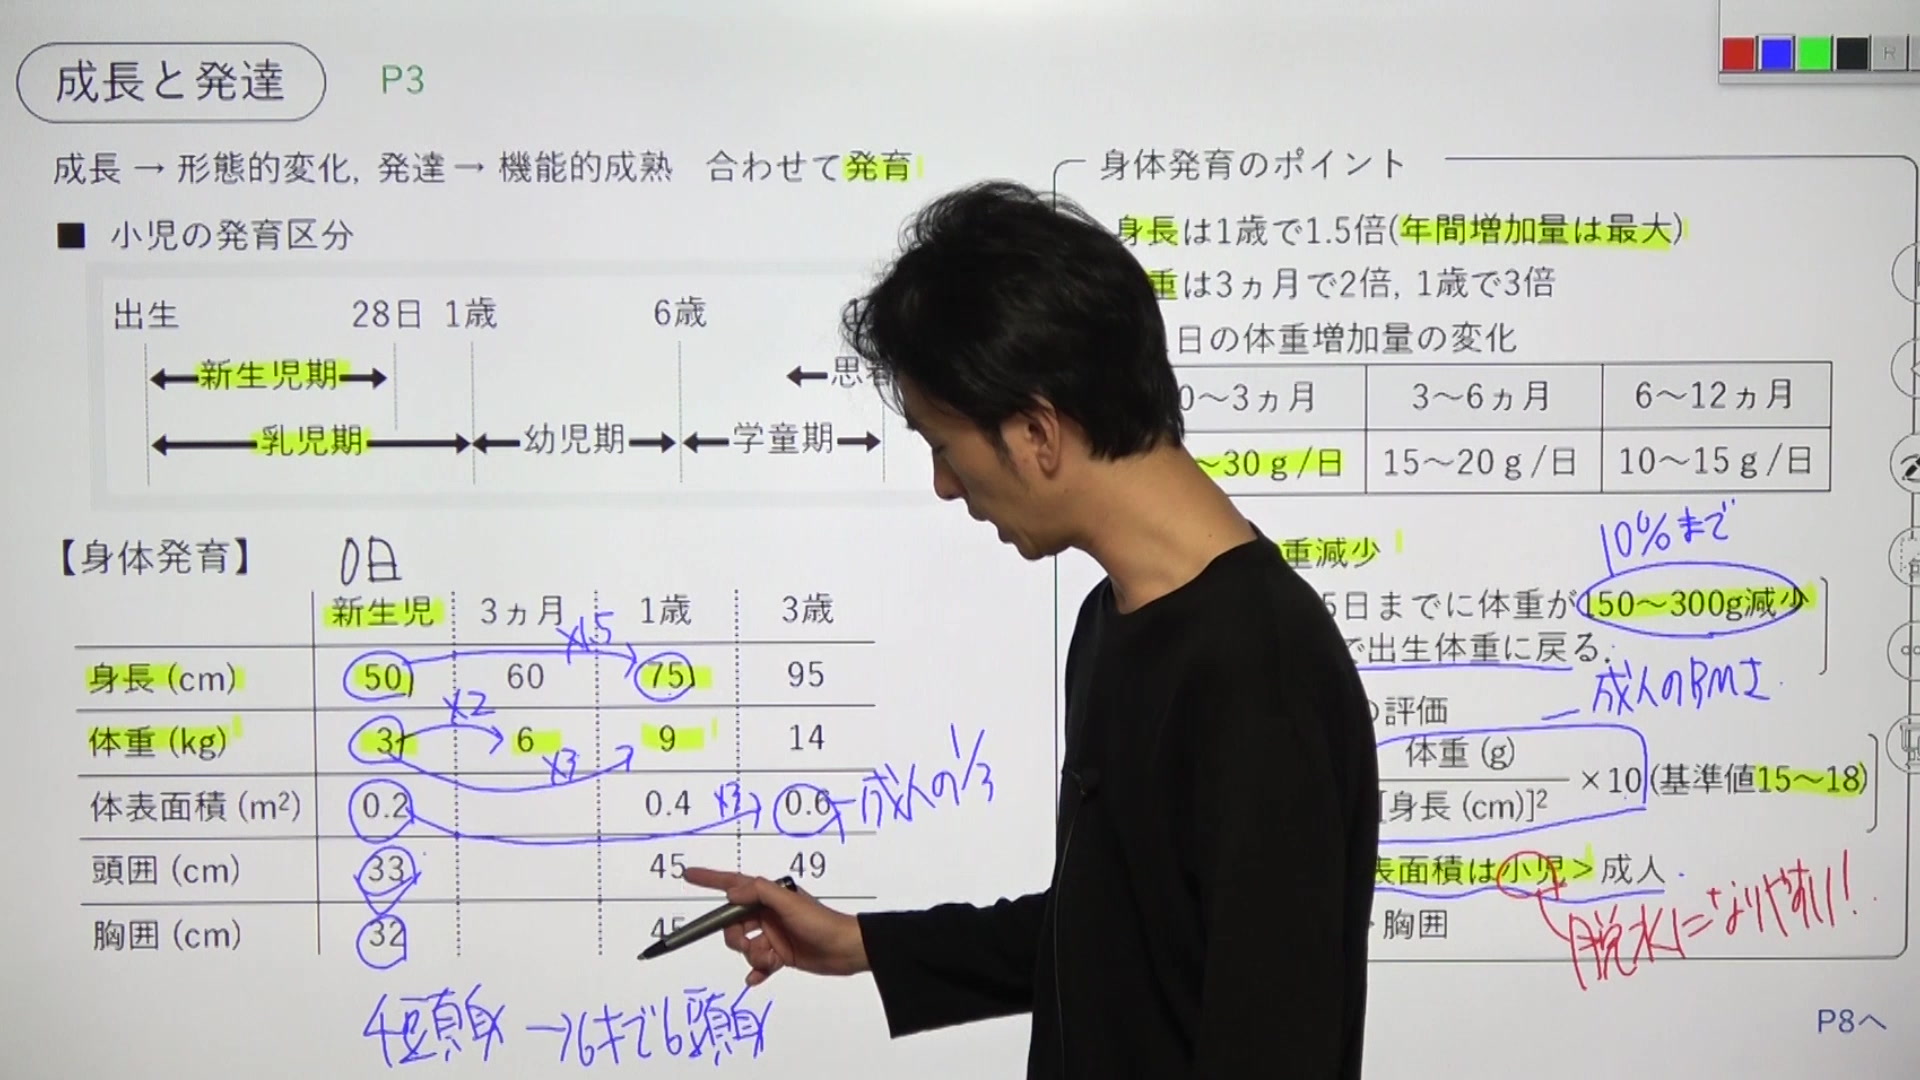 成長と発達
P3
成長 → 形態的変化, 発達 → 機能的成熟 合わせて発育
■ 小児の発育区分
出生 28日 1歳 6歳
新生児期
乳児期 幼児期 学童期
【身体発育】 0日
新生児 3ヵ月 1歳 3歳
×1.5
身長 (cm) 50 60 75 95
×2
体重 (kg) 3 6 9 14
×3
体表面積 (m²) 0.2 0.4 ×3 0.6 成人の1/3
頭囲 (cm) 33 45 49
胸囲 (cm) 32 45
4頭身 →6才で6頭身
身体発育のポイント
身長は1歳で1.5倍(年間増加量は最大)
重は3ヵ月で2倍, 1歳で3倍
日の体重増加量の変化
0～3ヵ月 3～6ヵ月 6～12ヵ月
～30g/日 15～20g/日 10～15g/日
重減少
10%まで
5日までに体重が150～300g減少
で出生体重に戻る.
成人のBMI
評価
体重 (g)
[身長 (cm)]² ×10 (基準値15～18)
表面積は小児 > 成人
脱水になりやすい!
胸囲
P8へ